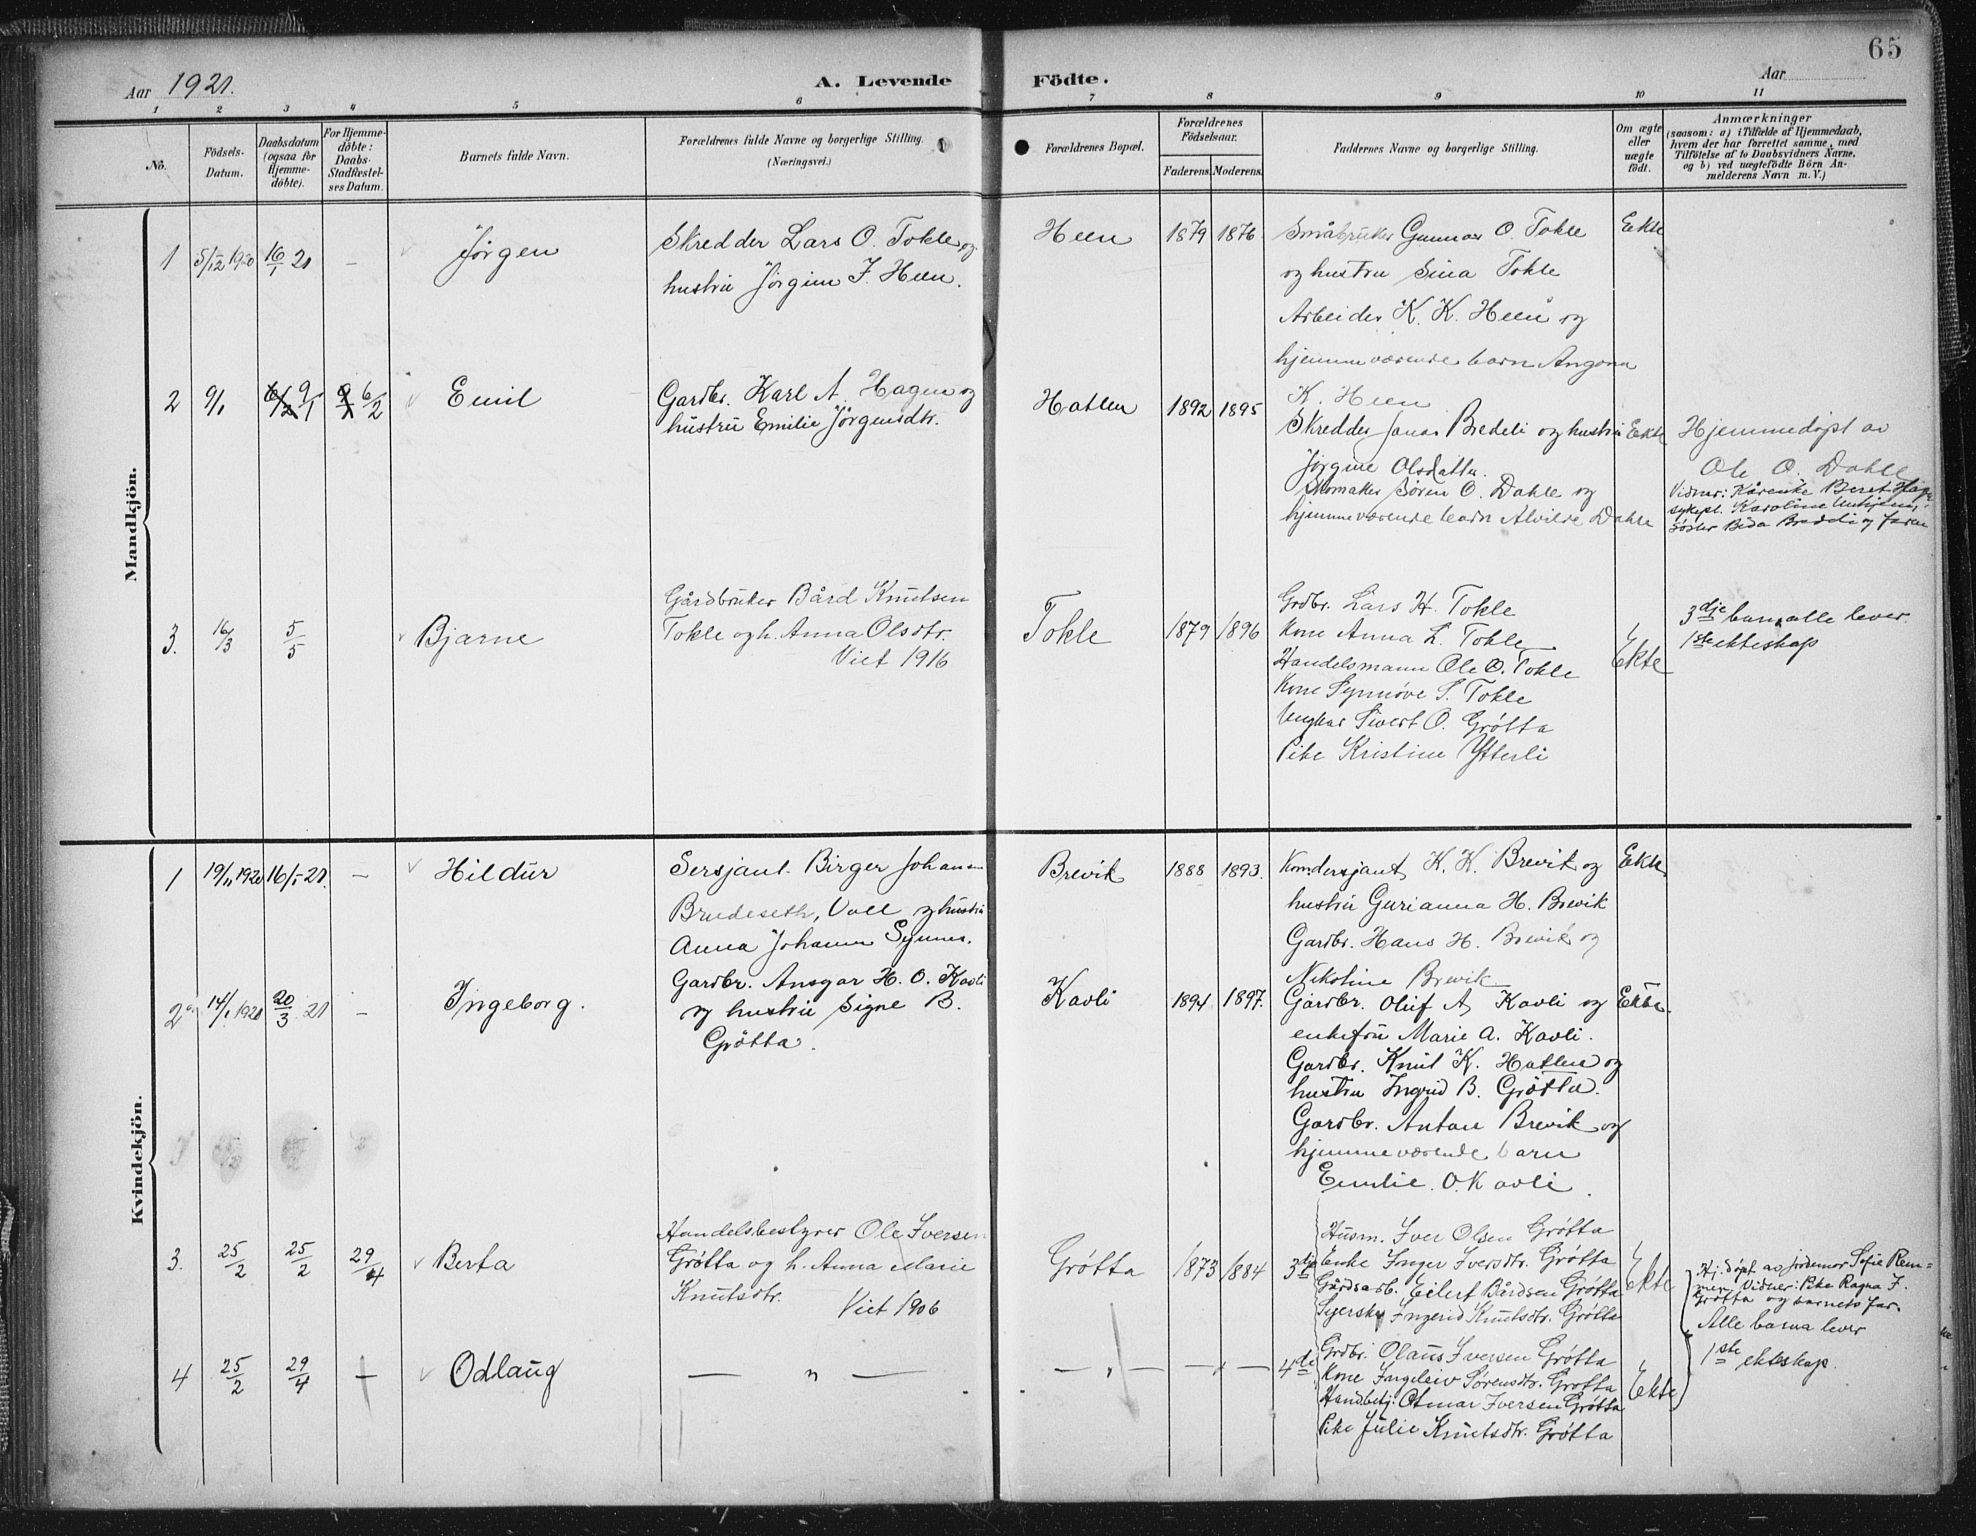 65
Aar 1921.
A. Levende Födte.
Aar
1 2 3 4 5 6 7 8 9 10 11
Nö.
Födsels-
Datum.
Daabsdatum
(ogsaa for
Hjemme-
döbte).
For Hjemme-
döbte:
Daabs-
Stadfæstel-
ses Datum.
Barnets fulde Navn.
Forældrenes fulde Navne og borgerlige Stilling.
(Næringsvei.)
Forældrenes Bopæl.
Forældrenes
Födselsaar.
Faderens. Moderens.
Faddernes Navne og borgerlige Stilling.
Om ægte
eller
uægte
födt.
Anmærkninger
(saasom: a) i Tilfælde af Hjemmedaab,
hvem der har forrettet samme, med
Tilföielse af to Daabsvidners Navne.
og b) ved uægtefödte Börn An-
melderens Navn m. V.)
Mandkjön.
1 5/12 1920 16/1 21 – Jørgen
Skredder Lars O. Tokle og
hustru Jørgine J. Heen.
Heen 1879 1876
Småbruker Gunnar O. Tokle
og hustru Sina Tokle
Arbeider K. K. Heen og
hjemmeværende barn Angona
K. Heen
Ekte
2 9/1 6/2 9/1 9/1 6/2 Emil
Gardbr. Karl A. Hagen og
hustru Emilie Jørgensdtr.
Hatlen 1892 1895
Skredder Jonas Bredeli og hustru
Jørgine Olsdatter.
Skomaker Søren O. Dahle og
hjemmeværende barn Alvilde Dahle
Ekte
Hjemmedøpt av
Ole O. Dahle
Vidner: Beret
sykepl. Karoline
søster Beda Bredeli og faren
3. 16/3 5/5 Bjarne
Gårdbruker Bård Knutsen
Tokle og h. Anna Olsdtr.
Viet 1916
Tokle 1879 1896
Grdbr. Lars H. Tokle
Kone Anna L. Tokle
Handelsmann Ole O. Tokle
Kone Synnøve S. Tokle
Ungkar Sivert O. Grøtta
Pike Kristine Ytterli
Ekte
3dje barn, alle lever.
1ste ekteskap
Kvindekjön.
1 19/11 1920 16/1 21. – Hildur
Sersjant Birger Johansen
Brudeseth, Voll og hustru
Anna Johanne Synnes.
Brevik 1888 1893.
Komdersjant K. K. Brevik og
hustru Gurianna H. Brevik
Gardbr. Hans H. Brevik og
Nikoline Brevik
Ekte.
2 14/1 1920 20/3 21 – Ingeborg.
Gardbr. Ansgar H. O. Kavli
og hustru Signe B.
Grøtta.
Kavli 1894 1897.
Gardbr. Oluf A. Kavli og
enkefru Marie A. Kavli.
Gardbr. Knut K. Hatlen og
hustru Ingrid B. Grøtta.
Gardbr. Anton Brevik og
hjemmeværende barn
Emilie O. Kavli.
Ekte.
3. 25/2 25/2 29/4 Berta
Handelsbestyrer Ole Iversen
Grøtta og h. Anna Marie
Knutsdtr.
Viet 1906
Grøtta 1873 1884 3dje
Husm. Iver Olsen Grøtta
Enke Inger Iversdtr. Grøtta
Gårdsarb. Eilert Bårdsen Grøtta
Syerske Ingerid Knutsdtr. Grøtta
Ekte
Hj. døpt av jordemor Sofie Rem-
men. Vidner: Pike Ragna I.
Grøtta og barnets far.
Alle barna lever
1ste ekteskap.
4 25/2 29/4 – Odlaug
— " —
— " — — " — 4de
Grdbr. Olaus Iversen Grøtta
Kone Ingeleiv Sørensdtr. Grøtta
Handbetj. Otmar Iversen Grøtta
Pike Julie Knutsdtr. Grøtta
Ekte